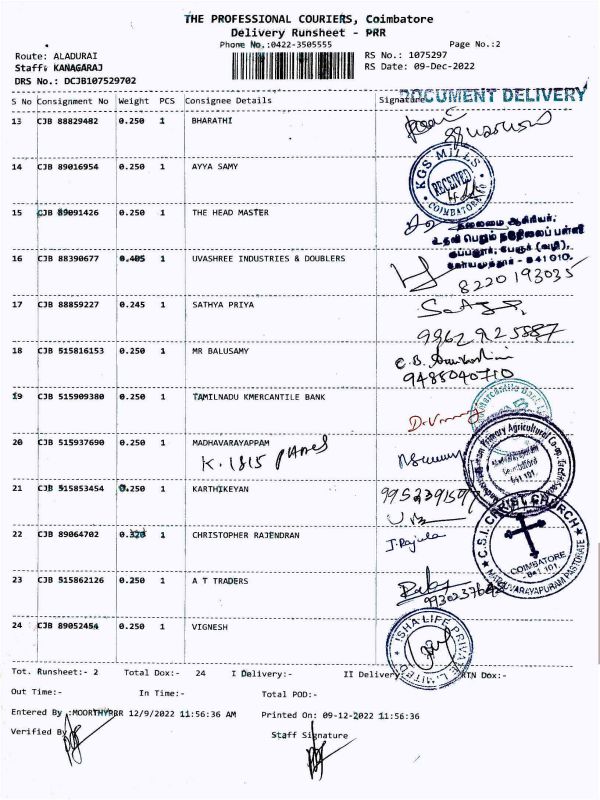 THE PROFESSIONAL COURIERS, Coimbatore
Delivery Runsheet - PRR
Phone No.:0422-3505555
Page No.:2
Route: ALADURAI
RS No.: 1075297
Staff: KANAGARAJ
RS Date: 09-Dec-2022
DRS No.: DCJB107529702
DOCUMENT DELIVERY
S No Consignment No Weight PCS Consignee Details Signature
13 CJB 88829482 0.250 1 BHARATHI
14 CJB 89016954 0.250 1 AYYA SAMY
KGS MILLS
RECEIVED
COIMBATORE
15 CJB 89091426 0.250 1 THE HEAD MASTER
தலைமை ஆசிரியர்,
உதவி பெறும் நடுநிலைப் பள்ளி
பேரூர் (வழி),
கோயமுத்தூர் - 641010.
16 CJB 88390677 0.405 1 UVASHREE INDUSTRIES & DOUBLERS
8220193035
17 CJB 88859227 0.245 1 SATHYA PRIYA
9962925887
18 CJB 515816153 0.250 1 MR BALUSAMY
9485040710
19 CJB 515909380 0.250 1 TAMILNADU KMERCANTILE BANK
Mercantile Bank
20 CJB 515937690 0.250 1 MADHAVARAYAPPAM
K. 1815
Primary Agricultural Co-op. Credit
21 CJB 515853454 0.250 1 KARTHIKEYAN
22 CJB 89064702 0.320 1 CHRISTOPHER RAJENDRAN
J. Rajula
C.S.I. CHRIST CHURCH
COIMBATORE
- 641 101.
MATHUVARAYAPURAM PASTORATE
23 CJB 515862126 0.250 1 A T TRADERS
24 CJB 89052454 0.250 1 VIGNESH
ISHA LIFE PRIVATE LIMITED
Tot. Runsheet:- 2 Total Dox:- 24 I Delivery:- II Delivery RTN Dox:-
Out Time:- In Time:- Total POD:-
Entered By :MOORTHYPRR 12/9/2022 11:56:36 AM Printed On: 09-12-2022 11:56:36
Verified By
Staff Signature